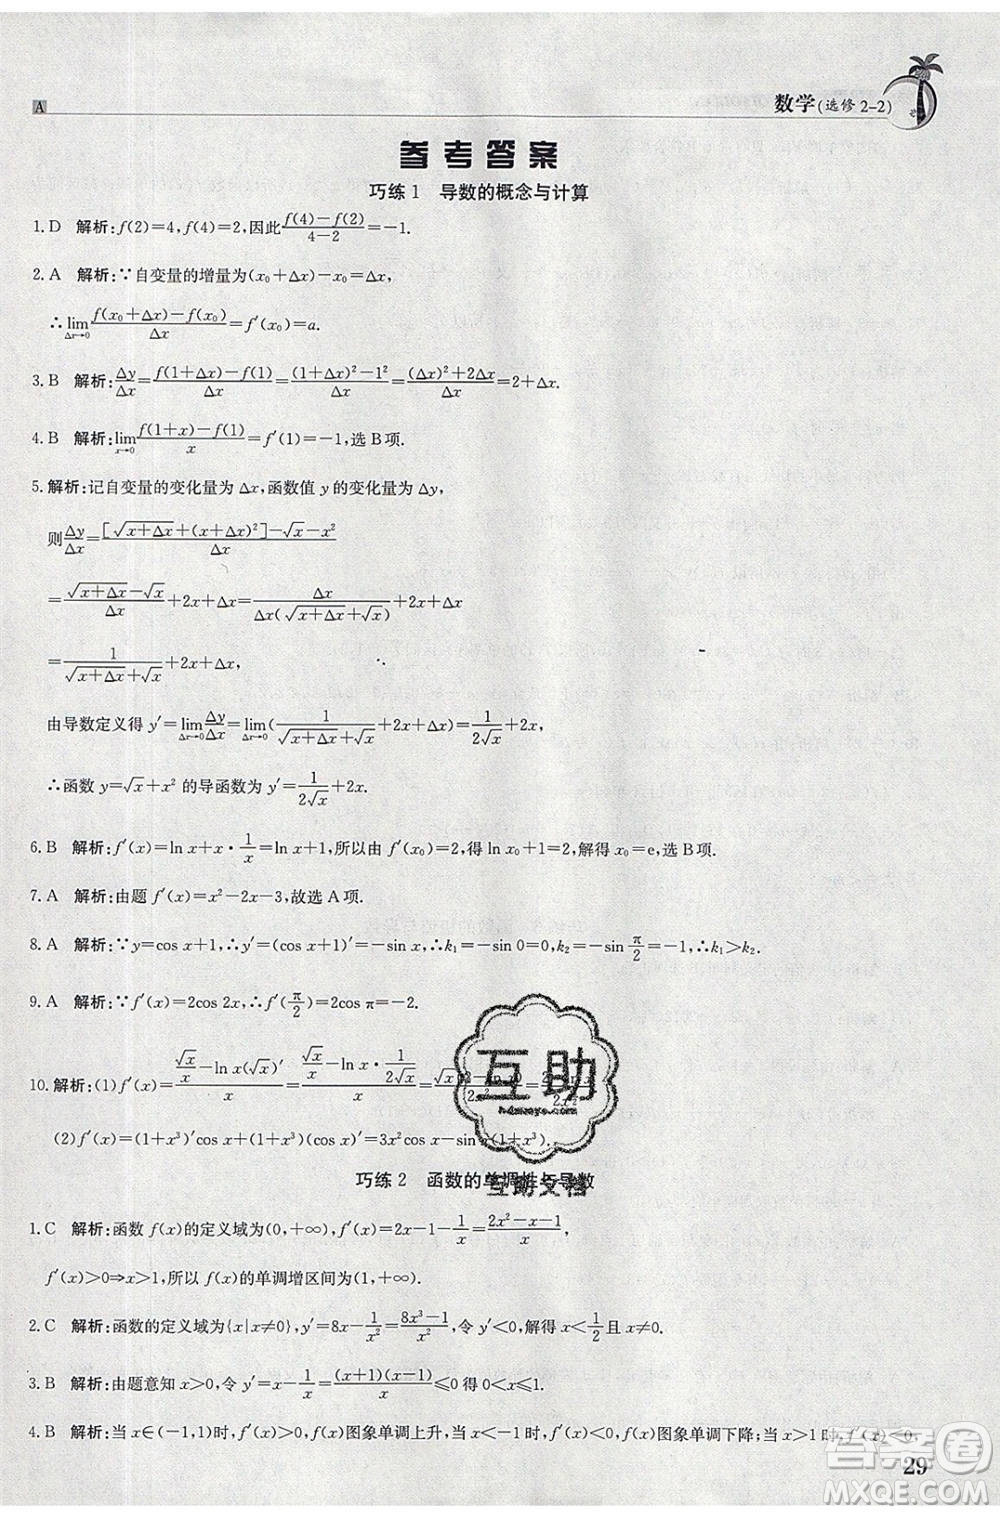 A
数学(选修2-2)
参考答案
巧练1 导数的概念与计算
1. D 解析:f(2)=4,f(4)=2,因此\frac{f(4)-f(2)}{4-2}=-1.
2. A 解析:∵自变量的增量为(x₀+Δx)-x₀=Δx,
∴\lim_{Δx→0}\frac{f(x₀+Δx)-f(x₀)}{Δx}=f′(x₀)=a.
3. B 解析:\frac{Δy}{Δx}=\frac{f(1+Δx)-f(1)}{Δx}=\frac{(1+Δx)²-1²}{Δx}=\frac{(Δx)²+2Δx}{Δx}=2+Δx.
4. B 解析:\lim_{x→0}\frac{f(1+x)-f(1)}{x}=f′(1)=-1,选B项.
5. 解析:记自变量的变化量为Δx,函数值y的变化量为Δy,
则\frac{Δy}{Δx}=\frac{[\sqrt{x+Δx}+(x+Δx)²]-\sqrt{x}-x²}{Δx}
=\frac{\sqrt{x+Δx}-\sqrt{x}}{Δx}+2x+Δx=\frac{Δx}{Δx(\sqrt{x+Δx}+\sqrt{x})}+2x+Δx
=\frac{1}{\sqrt{x+Δx}+\sqrt{x}}+2x+Δx,
由导数定义得y′=\lim_{Δx→0}\frac{Δy}{Δx}=\lim_{Δx→0}(\frac{1}{\sqrt{x+Δx}+\sqrt{x}}+2x+Δx)=\frac{1}{2\sqrt{x}}+2x,
∴函数y=\sqrt{x}+x²的导函数为y′=\frac{1}{2\sqrt{x}}+2x.
6. B 解析:f′(x)=ln x+x·\frac{1}{x}+1,所以由f′(x₀)=2,得ln x₀+1=2,解得x₀=e,选B项.
7. A 解析:由题f′(x)=x²-2x-3,故选A项.
8. A 解析:∵y=cos x+1,∴y′=(cos x+1)′=-sin x,∴k₁=-sin 0=0,k₂=-sin\frac{π}{2}=-1,∴k₁>k₂.
9. A 解析:∵f′(x)=2cos 2x,∴f′(\frac{π}{2})=2cos π=-2.
10. 解析:(1)f′(x)=\frac{\frac{\sqrt{x}}{x}-ln x(\sqrt{x})′}{x}=\frac{\frac{\sqrt{x}}{x}-ln x\frac{1}{2\sqrt{x}}}{x}=
(2)f′(x)=(1+x³)′cos x+(1+x³)(cos x)′=3x²cos x-sin x(1+x³).
巧练2 函数的单调性与导数
1. C 解析:函数f(x)的定义域为(0,+∞),f′(x)=2x-1-\frac{1}{x}=\frac{2x²-x-1}{x},
f′(x)>0⇒x>1,所以f(x)的单调增区间为(1,+∞).
2. C 解析:函数的定义域为{x|x≠0},y′=8x-\frac{1}{x²}=\frac{8x³-1}{x²},令y′<0,解得x<\frac{1}{2}且x≠0.
3. B 解析:由题意知x>0,令y′=x-\frac{1}{x}=\frac{(x+1)(x-1)}{x}≤0得0<x≤1.
4. B 解析:当x∈(-1,1)时,f′(x)>0,f(x)图象单调上升,x<-1时,f′(x)<0,f(x)图象单调下降;当x>1时,f′(x)<0,
29
互助
hdzuoye.com
互助文档
答案圈
MXQE.COM